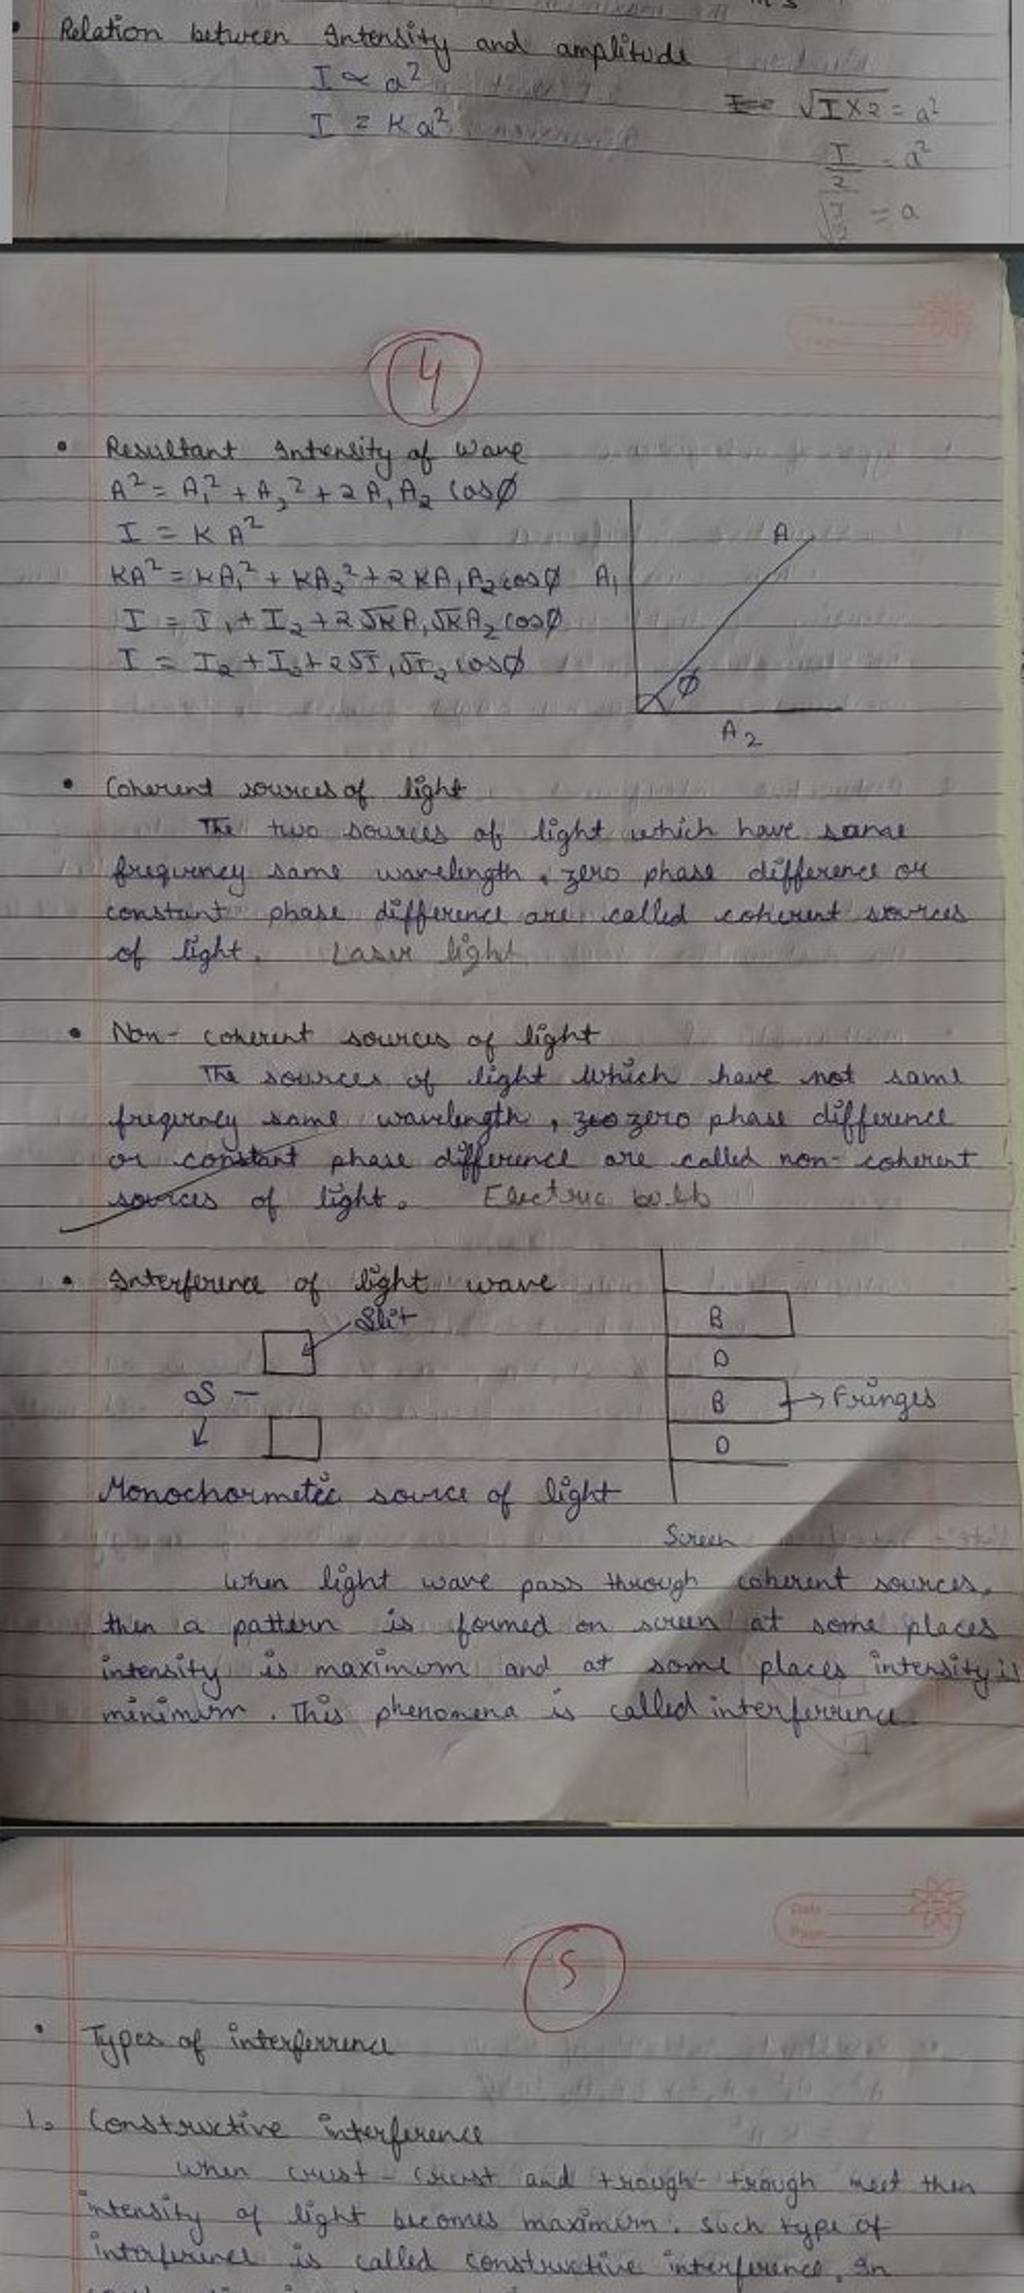 • Relation between Intensity and amplitude
I ∝ a²
√I×2 = a²
I = Ka²
I/2 = a²
√I/2 = a
4
• Resultant Intensity of wave
A² = A₁² + A₂² + 2A₁A₂ cosϕ
I = KA²
KA² = KA₁² + KA₂² + 2KA₁A₂cosϕ
I = I₁ + I₂ + 2√KA₁√KA₂cosϕ
I = I₂ + I₂ + 2√I₁√I₂ cosϕ
A
A₁
ϕ
A₂
• Coherent sources of light
The two sources of light which have same
frequency same wavelength, zero phase difference or
constant phase difference are called coherent sources
of light. Laser light
• Non-coherent sources of light
The sources of light which have not same
frequency same wavelength, zero phase difference
or constant phase difference are called non-coherent
sources of light. Electric bulb
• Interference of light wave
Slit
B
D
S
B → Fringes
D
Monochormetic source of light
Screen
When light wave pass through coherent sources,
then a pattern is formed on screen at some places
intensity is maximum and at some places intensity is
minimum. This phenomena is called interferrence.
Date
Page
5
• Types of interferrence
1. Constructive interference
When crust-crust and trough-trough meet then
intensity of light becomes maximum. Such type of
interference is called constructive interference. In